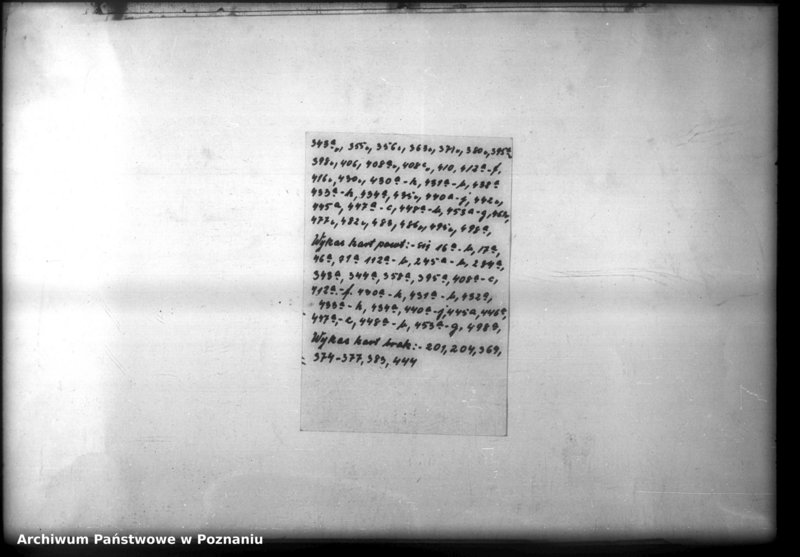 343ª, 355v, 356v, 363v, 371v, 380v, 395ª,
398v, 406, 408ªv, 408ªv, 410, 412ª-f,
416v, 430v, 430ª-h, 431ª-b, 432ª
433ª-h, 434ª, 435v, 440ª-j, 442v,
445ª, 447ª-c, 448ª-b, 453ª-g, 462,
477v, 482v, 483, 486v, 495v, 498ª,
Wykaz kart powt:- się 16ª-b, 17ª,
46ª, 91ª 112ª-b, 245ª-b, 284ª,
343ª, 344ª, 358ª, 395ª, 408ª-c,
412ª-f. 430ª-h, 431ª-b, 432ª,
433ª-h, 434ª, 440ª-j, 445a, 446ª,
447ª-c, 448ª-b, 453ª-g. 498ª,
Wykaz kart brak:- 201, 204, 369,
374-377, 383, 444
Archiwum Państwowe w Poznaniu